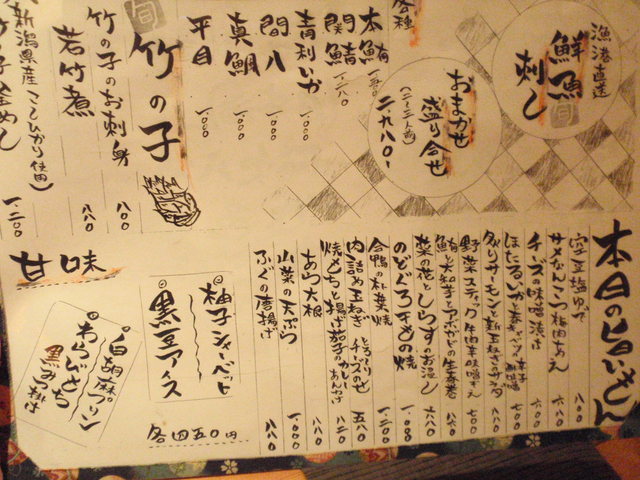 漁港直送
鮮魚
刺し
旬
おまかせ
盛り合せ
(二〜三人前)
二.九八〇-
各種
本鮪
関鯖 一.二八〇
青利いか 一.〇〇〇
間八 一.〇〇〇
真鯛 一.〇〇〇
平目 一.〇〇〇
旬
竹の子
竹の子のお刺身 八〇〇
若竹煮 八八〇
新潟県産こしひかり使用)
竹の子釜めし 一.二〇〇
本日の旨いもん
空豆塩ゆで 八〇〇
サメなんこつ梅肉あえ 六〇〇
チーズの味噌漬け 六〇〇
ほたるいか 七〇〇
炙りサーモンと新玉ねぎのサラダ 八八〇
野菜スティック 牛肉辛味噌 七〇〇
鮪と大和芋とアボカドの生春巻 八八〇
菜の花としらすのお浸し 六八〇
のどぐろ 一.〇〇〇
合鴨の朴葉焼 一.二〇〇
肉詰め玉ねぎ チーズのせ 五八〇
焼もちと揚げ茄子のあんかけ 八二〇
あつあつ大根 八八〇
山菜の天ぷら 一.〇〇〇
ふぐの唐揚げ 八八〇
甘味
柚子シャーベット
黒豆アイス
各四五〇円
白胡麻プリン
わらびもち
黒みつ掛け